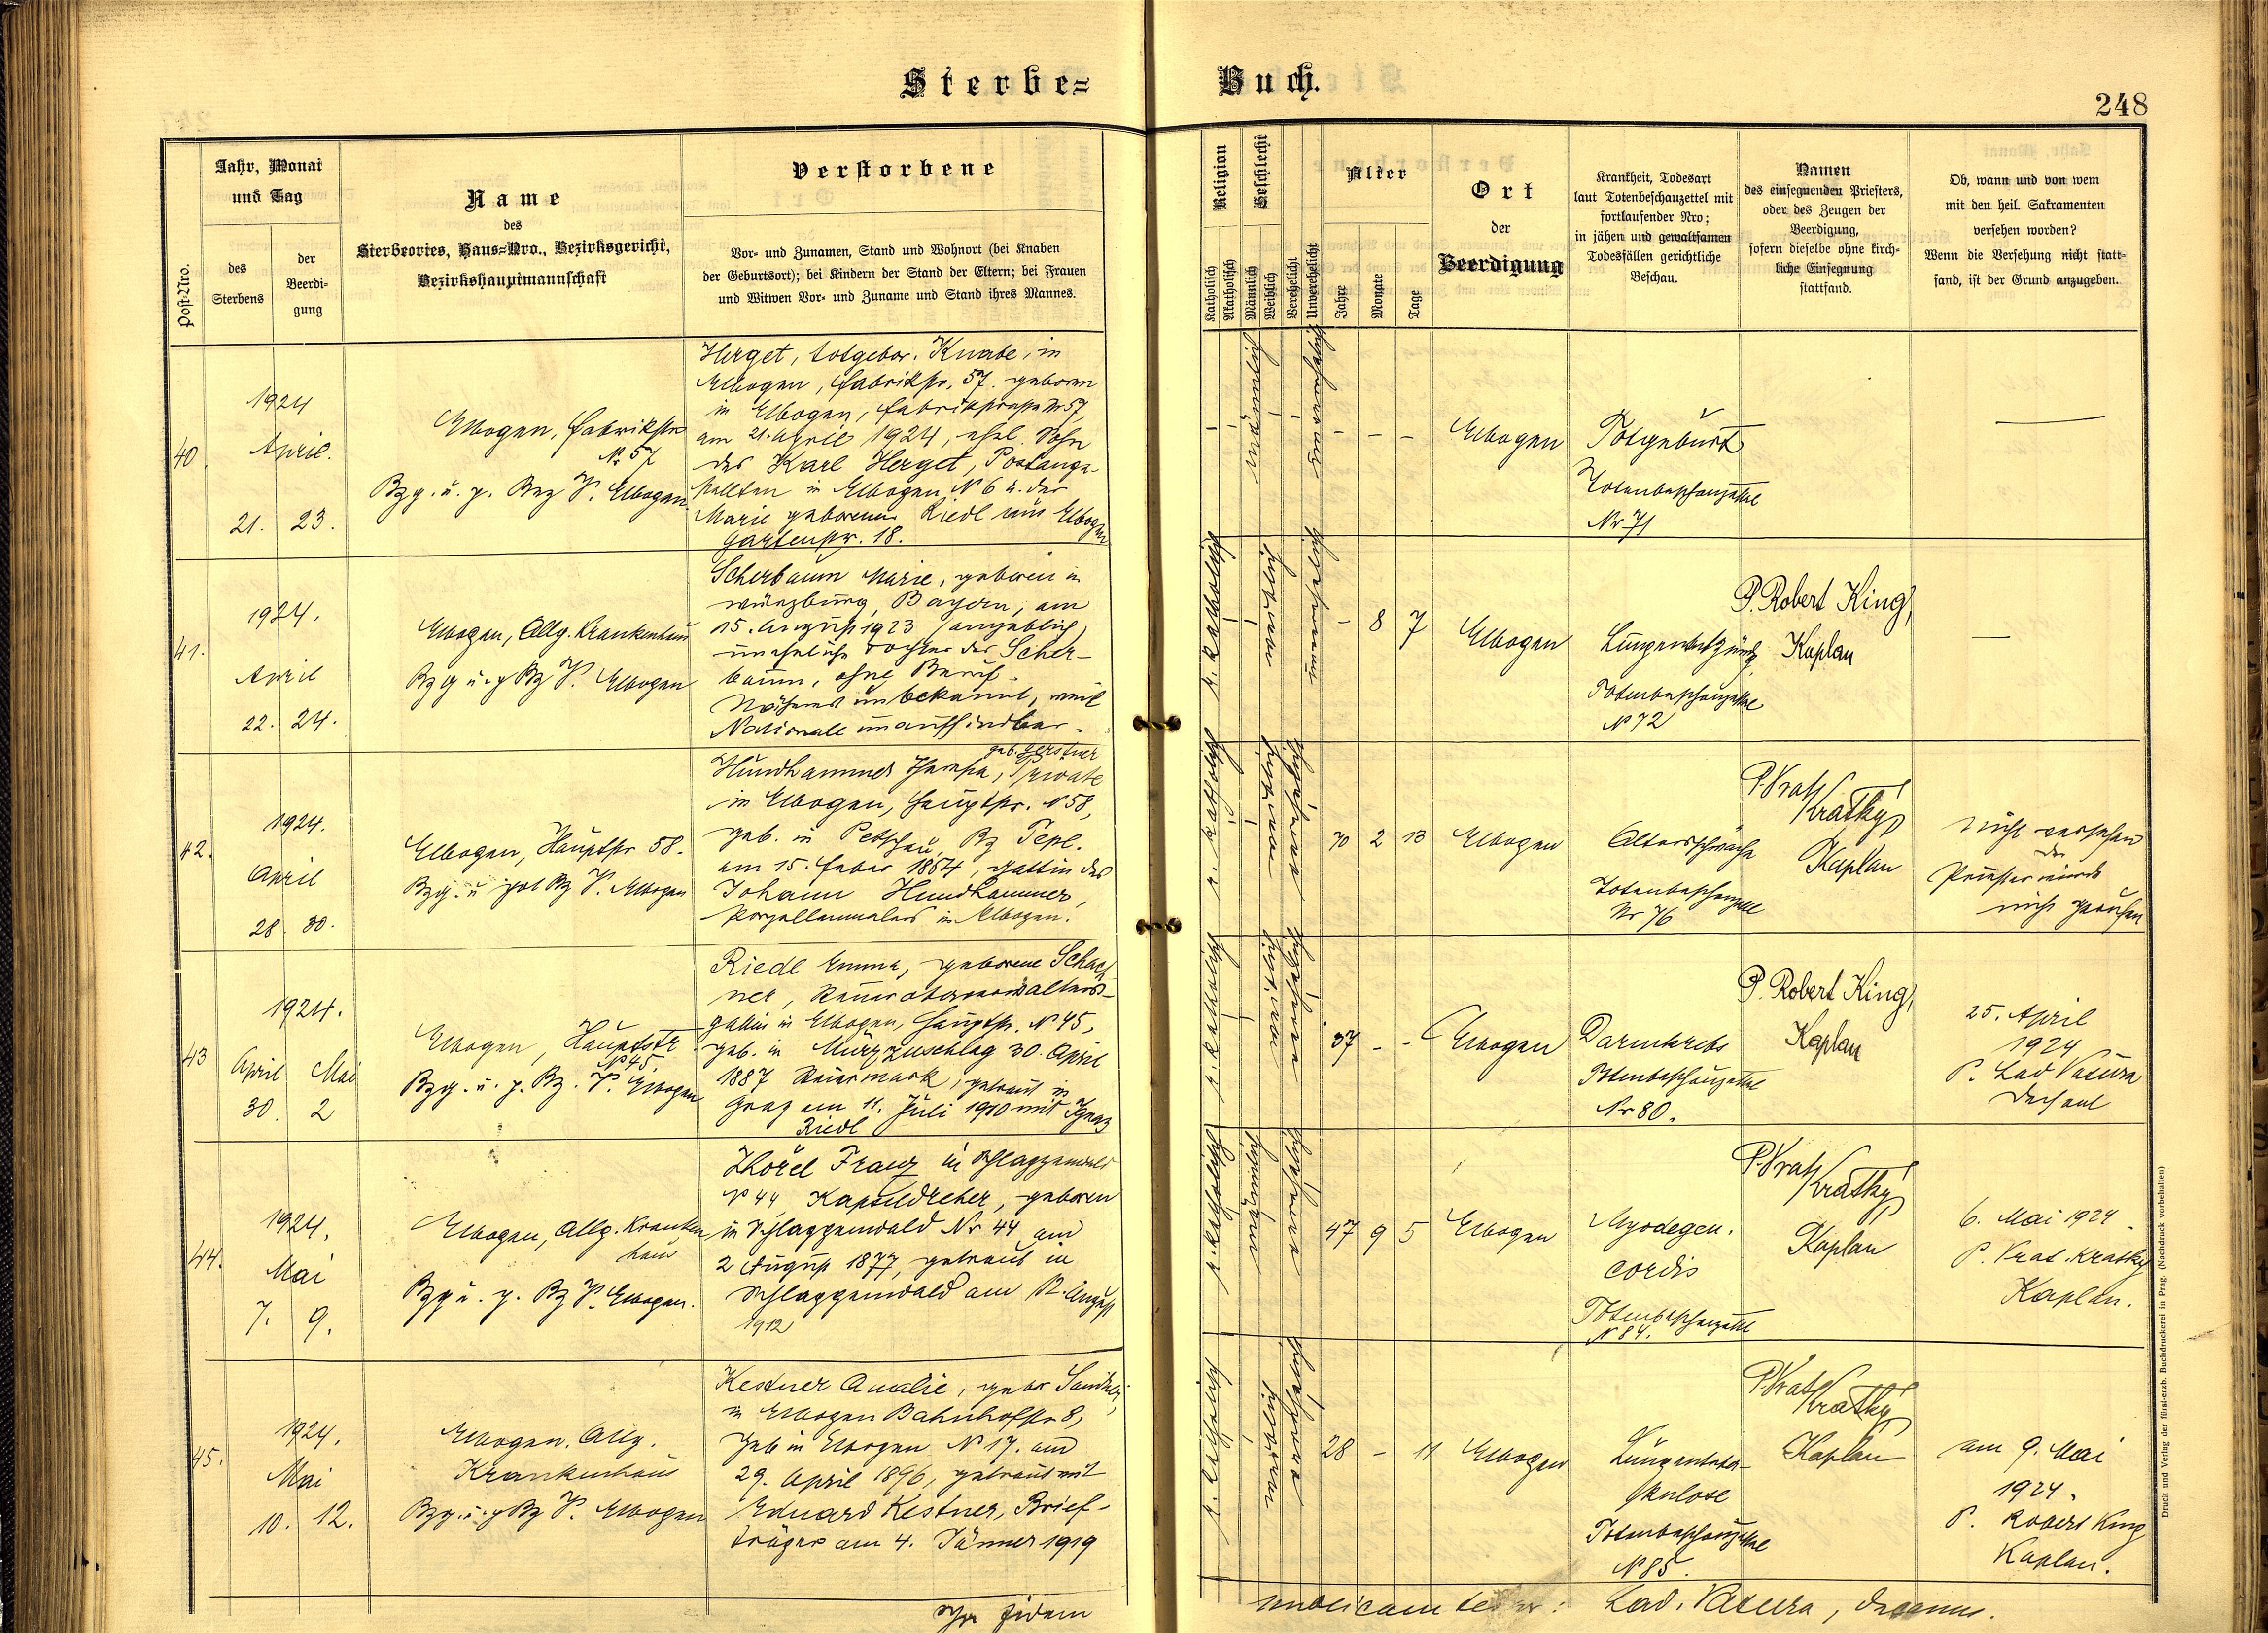 Sterbe=
Buch.
248
Post-Nro.
Jahr, Monat
und Tag
des
Sterbens
der
Beerdi-
gung
Name
des
Sterbeortes, Haus=Nro., Bezirksgericht,
Bezirkshauptmannschaft
Verstorbene
Vor- und Zunamen, Stand und Wohnort (bei Knaben
der Geburtsort); bei Kindern der Stand der Eltern; bei Frauen
und Witwen Vor- und Zuname und Stand ihres Mannes.
Religion
Katholisch
Akatholisch
Geschlecht
Männlich
Weiblich
Verehelicht
Unverehelicht
Alter
Jahre
Monate
Tage
Ort
der
Beerdigung
Krankheit, Todesart
laut Totenbeschauzettel mit
fortlaufender Nro;
in jähen und gewaltsamen
Todesfällen gerichtliche
Beschau.
Namen
des einsegnenden Priesters,
oder des Zeugen der
Beerdigung,
sofern dieselbe ohne kirch-
liche Einsegnung
stattfand.
Ob, wann und von wem
mit den heil. Sakramenten
versehen worden?
Wenn die Versehung nicht statt-
fand, ist der Grund anzugeben.
40.
1924
April.
21. 23.
Elbogen, Fabrikstr
No 57
Bzg. u. p. Bez V. Elbogen
Herget, totgebor. Knabe, in
Elbogen, Fabrikstr. 57. geboren
in Elbogen, Fabrikstrasse Nr 57,
am 21. April 1924, ehel. Sohn
des Karl Herget, Postange-
stellten in Elbogen N 6 u. der
Marie geborenen Riedl aus Elbogen
Gartenstr. 18.
männlich
unverehelicht
- - -
Elbogen
Totgeburt
Totenbeschauzettel
Nr 71
—
41.
1924.
April
22. 24.
Elbogen, Allg. Krankenhaus
Bzg u. p Bz V. Elbogen
Scherbaum Marie, geboren in
Würzburg, Bayern, am
15. August 1923 (angeblich)
uneheliche Tochter der Scher-
baum, ohne Beruf.
Näheres unbekannt, weil
Nationale unauffindbar.
r. katholisch
weiblich
unverehelicht
- 8 7
Elbogen
Lungenentzündg
Totenbeschauzettel
No 72
P. Robert King,
Kaplan
—
42.
1924.
April
28. 30.
Elbogen, Hauptstr 58.
Bzg. u pol Bz V. Elbogen
geb. Gerstner
Hundhammer Theresia, Private
in Elbogen, Hauptstr. N 58,
geb. in Petschau, Bz Tepl.
am 15. Feber 1854, Gattin des
Johann Hundhammer,
Porzellanmalers in Elbogen.
r. katholisch
weiblich
verehelicht
70 2 13
Elbogen
Altersschwäche
Totenbeschauzettel
Nr 76
P. Vrat. Kratky,
Kaplan
nicht versehen
der
Priester wurde
nicht gerufen
43
1924.
April Mai
30. 2
Elbogen, Hauptstr
No 45.
Bzg. u. p. Bz. V. Elbogen
Riedl Emma, geborene Schach
ner, Steueroberverwalters-
gattin in Elbogen, Hauptstr. N 45,
geb. in Mürzzuschlag 30. April
1887 Steiermark, getraut in
Graz am 11. Juli 1910 mit Ignaz
Riedl
r. katholisch
weiblich
verehelicht
37 - -
Elbogen
Darmkrebs
Totenbeschauzettel
Nr 80.
P. Robert King,
Kaplan
25. April
1924
P. Lad Vacura
Dechant
44.
1924.
Mai
7. 9.
Elbogen, Allg. Kranken
haus
Bzg u. p. Bz V. Elbogen.
Zhörel Franz in Schlaggenwald
No 44, Kapseldreher, geboren
in Schlaggenwald Nr 44 am
2 August 1877, getraut in
Schlaggenwald am 12. August
1912
r. katholisch
männlich
verehelicht
47 9 5
Elbogen
Myodegen.
cordis
Totenbeschauzettel
N 84.
P. Vrat. Kratky,
Kaplan
6. Mai 1924.
P. Vrat. Kratky
Kaplan.
45.
1924.
Mai
10. 12.
Elbogen, Allg.
Krankenhaus
Bzg. u. p Bz V. Elbogen
Kestner Amalie, gebor
in Elbogen Bahnhofstr 8,
geb in Elbogen N 17. am
29. April 1896, getraut mit
Eduard Kestner, Brief-
träger am 4. Jänner 1919
r. katholisch
weiblich
verehelicht
28 - 11
Elbogen
Lungentuber-
kulose
Totenbeschauzettel
N 85.
P. Vrat. Kratky
Kaplan
am 9. Mai
1924.
P. Robert King
Kaplan.
fidem
publicam Lad. Vacura, decanus.
Druck und Verlag der fürst-erzb. Buchdruckerei in Prag. (Nachdruck vorbehalten)